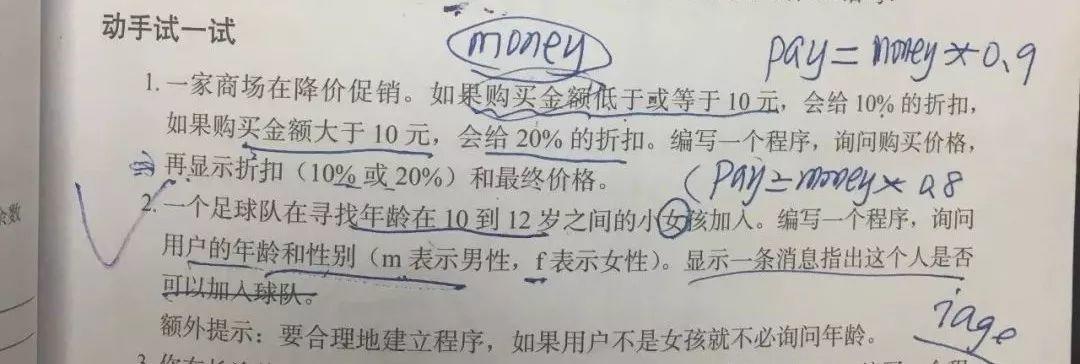 动手试一试
money
pay=money*0.9
1. 一家商场在降价促销。如果购买金额低于或等于10元，会给10%的折扣，
如果购买金额大于10元，会给20%的折扣。编写一个程序，询问购买价格，
再显示折扣（10%或20%）和最终价格。
(pay=money* 0.8
2. 一个足球队在寻找年龄在10到12岁之间的小女孩加入。编写一个程序，询问
用户的年龄和性别（m表示男性，f表示女性）。显示一条消息指出这个人是否
可以加入球队。
余数
额外提示：要合理地建立程序，如果用户不是女孩就不必询问年龄。
iage